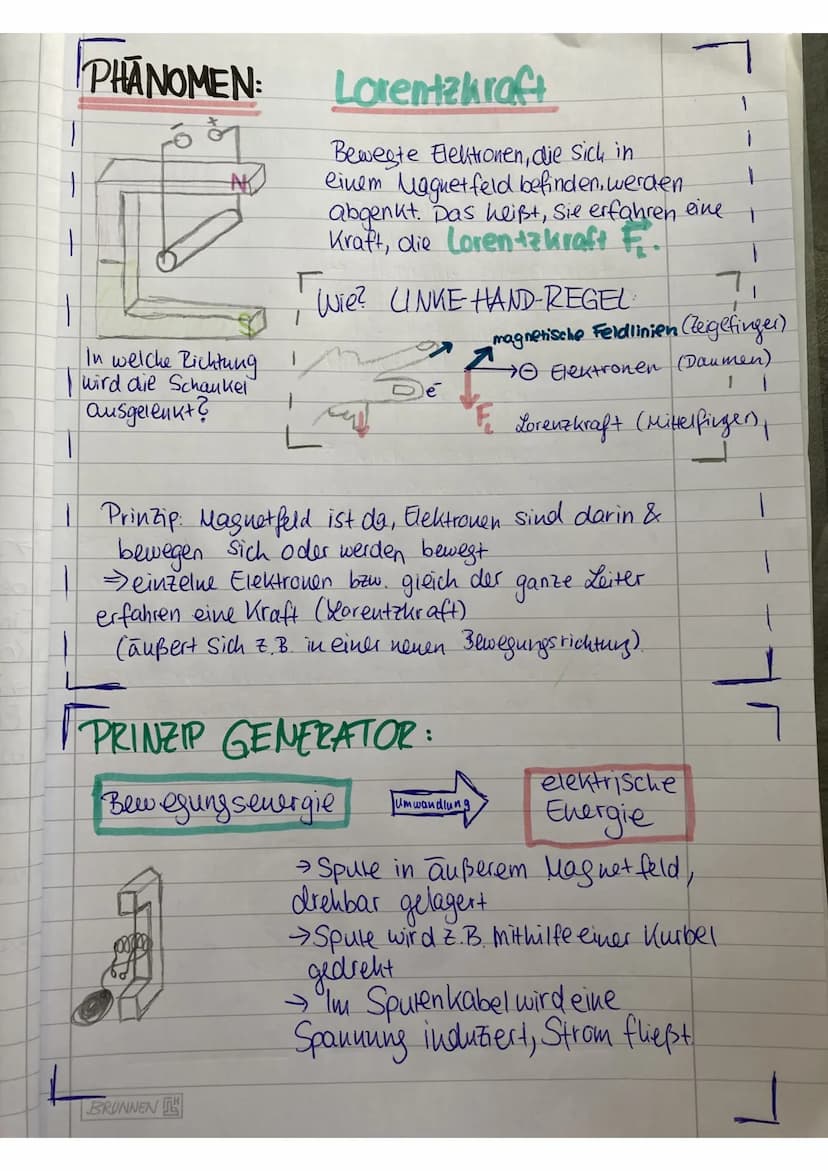 PHÄNOMEN:
Lorentzkraft
- +
N
S
Bewegte Elektronen, die sich in
einem Magnetfeld befinden, werden
abgenkt. Das heißt, sie erfahren eine
Kraft, die Lorentzkraft F_L.
In welche Richtung
wird die Schaukel
ausgelenkt?
Wie? LINKE-HAND-REGEL
magnetische Feldlinien (Zeigefinger)
⊖ Elektronen (Daumen)
e⁻
F_L Lorenzkraft (Mittelfinger)
Prinzip: Magnetfeld ist da, Elektronen sind darin &
bewegen sich oder werden bewegt
⇒ einzelne Elektronen bzw. gleich der ganze Leiter
erfahren eine Kraft (Lorentzkraft)
(äußert sich z.B. in einer neuen Bewegungsrichtung)
PRINZIP GENERATOR:
Bewegungsenergie
Umwandlung
elektrische
Energie
→ Spule in äußerem Magnetfeld,
drehbar gelagert
→ Spule wird z.B. mithilfe einer Kurbel
gedreht
→ Im Spulenkabel wird eine
Spannung induziert, Strom fließt
BRUNNEN